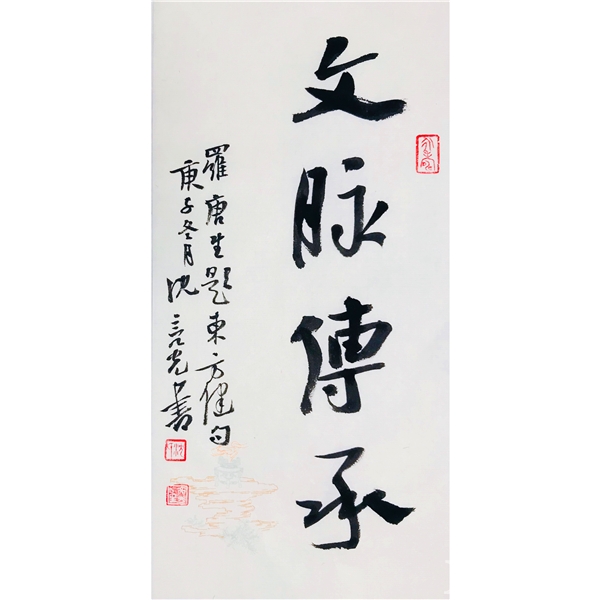 文脉傳承
羅唐生題東方健句
庚子冬月沈言光書